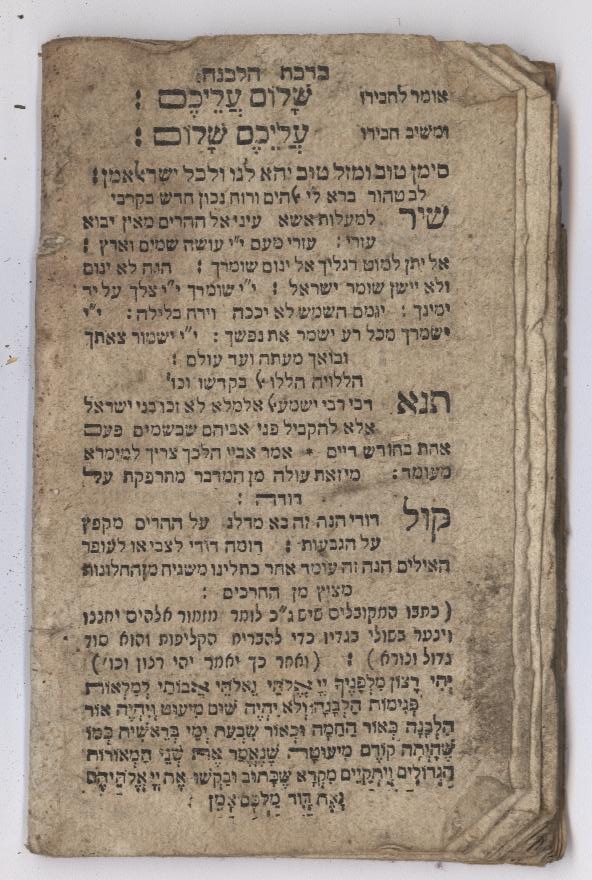 ברכת הלבנה:
אומר לחבירו שָׁלוֹם עֲלֵיכֶם :
ומשיב חבירו עֲלֵיכֶם שָׁלוֹם :
סימן טוב ומזל טוב יהא לנו ולכל ישראל אמן :
לב טהור ברא לי אלהים ורוח נכון חדש בקרבי
שיר למעלות אשא עיני אל ההרים מאין יבוא
עזרי : עזרי מעם י״י עושה שמים וארץ :
אל יתן למוט רגליך אל ינום שומרך : הנה לא ינום
ולא יישן שומר ישראל : י״י שומרך י״י צלך על יד
ימינך : יומם השמש לא יככה וירח בלילה : י״י
ישמרך מכל רע ישמר את נפשך : י״י ישמור צאתך
ובואך מעתה ועד עולם :
הללויה הללו אל בקדשו וכו'
תנא דבי רבי ישמעאל אלמלא לא זכו בני ישראל
אלא להקביל פני אביהם שבשמים פעם
אחת בחודש דיים * אמר אביי הלכך צריך למימרא
מעומד : מי זאת עולה מן המדבר מתרפקת על
דודה :
קול דודי הנה זה בא מדלג על ההרים מקפץ
על הגבעות : דומה דודי לצבי או לעופר
האילים הנה זה עומד אחר כתלינו משגיח מן החלונות
מציץ מן החרכים :
( כתבו המקובלים שיש ג״כ לומר מזמור אלהים יחננו
וינער בשולי בגדיו כדי להבריח הקליפות והוא סוד
גדול ונורא ) : ( ואחר כך יאמר יהי רצון וכו')
יְהִי רָצוֹן מִלְּפָנֶיךָ יְיָ אֱלֹהַי וֵאלֹהֵי אֲבוֹתַי לְמַלְּאוֹת
פְּגִימוֹת הַלְּבָנָה וְלֹא יִהְיֶה שׁוּם מִיעוּט וְיִהְיֶה אוֹר
הַלְּבָנָה כְּאוֹר הַחַמָּה וּכְאוֹר שִׁבְעַת יְמֵי בְרֵאשִׁית כְּמוֹ
שֶׁהָיְתָה קוֹדֶם מִיעוּטָהּ שֶׁנֶּאֱמַר אֶת שְׁנֵי הַמְּאוֹרוֹת
הַגְּדוֹלִים וְיִתְקַיֵּים מִקְרָא שֶׁכָּתוּב וּבִקְשׁוּ אֶת יְיָ אֱלֹהֵיהֶם
וְאֶת דָּוִד מַלְכָּם אָמֵן :